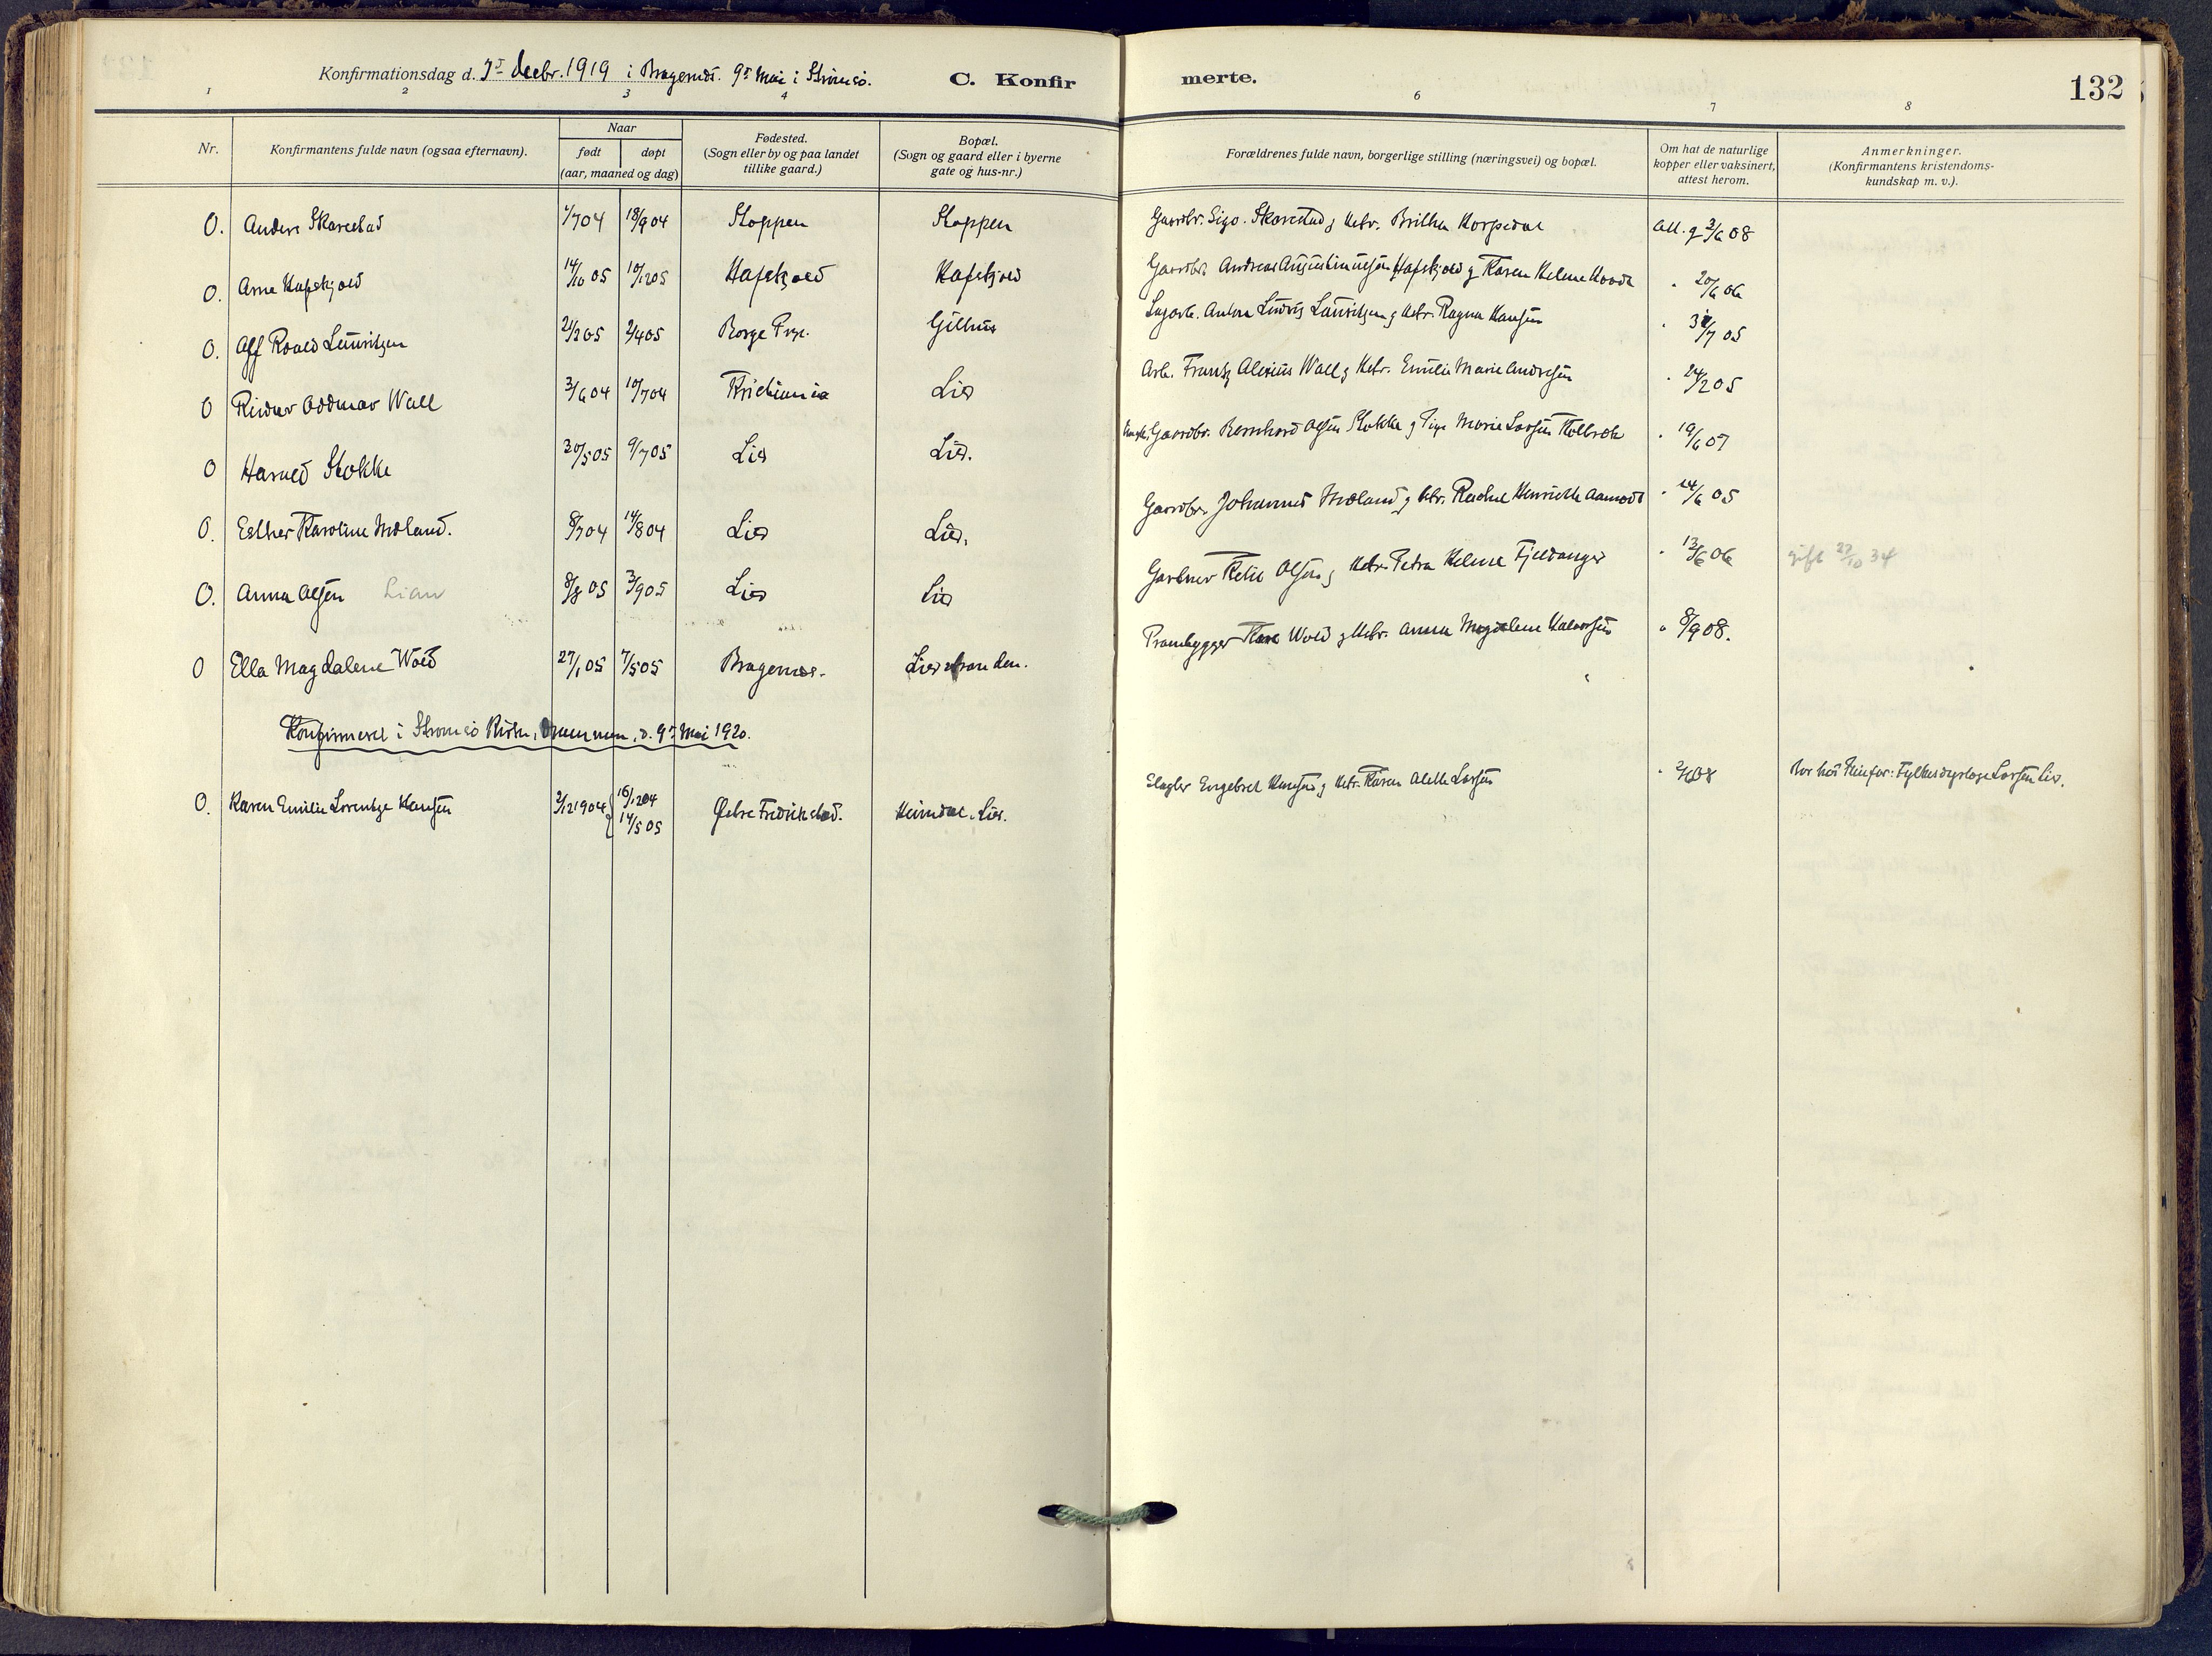 Konfirmationsdag d. 7de Decbr. 1919 i Bragernes. 9de Mai i Strømsø. C. Konfirmerte. 132
1 2 3 4 6 7 8
Nr. Konfirmantens fulde navn (ogsaa efternavn). Naar født døpt (aar, maaned og dag) Fødested. (Sogn eller by og paa landet tillike gaard.) Bopæl. (Sogn og gaard eller i byerne gate og hus-nr.) Forældrenes fulde navn, borgerlige stilling (næringsvei) og bopæl. Om hat de naturlige kopper eller vaksinert, attest herom. Anmerkninger. (Konfirmantens kristendomskundskap m. v.).
O. Anders Skarestad 1/7 04 18/9 04 Stoppen Stoppen Gaardbr. Skarestad og Hstr. Britha Att. g 3/6 08
O. Arne Hafskjold 14/10 05 10/12 05 Hafskjold Hafskjold Gaardbr. Andreas Hafskjold og Karen Helene " 20/6 06
O. Alf Roald Lauritzen 24/2 05 2/4 05 Borge Prgj. Gilhus Anton Ludvig Lauritzen og Hstr. Ragna Hansen " 7 05
O Reidar Oddmar Wall 3/6 04 10/7 04 Kristiania Lier Arb. Frantz Alexius Wall og Hstr. Emilie Marie Andresen " 24/2 05
O Harald Stokke 30/5 05 9/7 05 Lier Lier. Gaardbr. Bernhard Olsen Stokke og Pige Marie Larsen " 19/6 07
O. Esther Karoline Moland. 8/7 04 14/8 04 Lier Lier. Gaardbr. Johannes Moland og Hstr. Rachel Henriette Aamodt " 14/6 05
O. Anna Olsen Lian 8/8 05 3/9 05 Lier Lier Gartner Olsen og Hstr. Petra Helene Fjeldanger " 13/6 06 gift 27/10 34
O Ella Magdalene Wold 27/1 05 7/5 05 Bragernes. Lierstranden. Prambygger Wold og Hstr. Anna Magdalene Halvorsen " 8/9 08.
Konfirmeret i Strømsø Kirke, Drammen, d. 9de Mai 1920.
O. Karen Emilie Lorentze Hansen 2/12 1904 16/12 04 Østre Fredrikstad. Heimdal. Lier. Engebret Hansen og Hstr. Karen Alette Larsen " 2/6 08 Bor hos Larsen Lier.
14/5 05